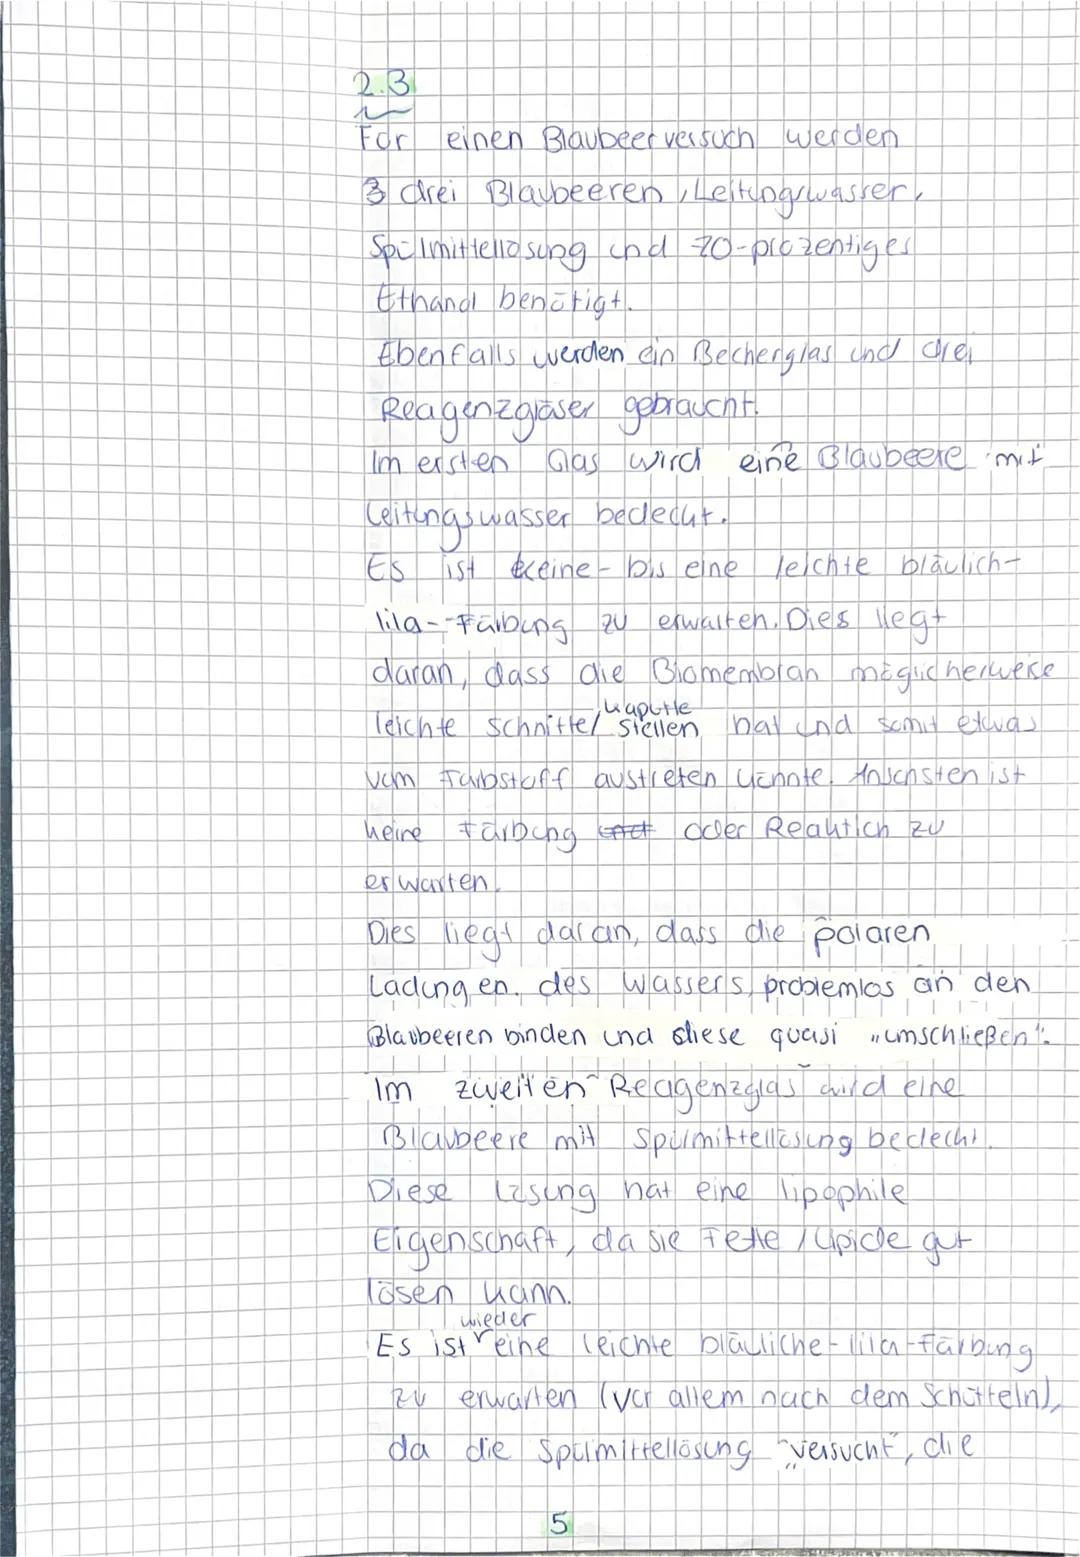 2.3
Für einen Blaubeerversuch werden
3 drei Blaubeeren, Leitungswasser,
Spülmittellösung und 70-prozentiges
Ethanol benötigt.
Ebenfalls werden ein Becherglas und drei
Reagenzgläser gebraucht.
Im ersten Glas wird eine Blaubeere mit
Leitungswasser bedeckt.
Es ist keine- bis eine leichte bläulich-
lila-Färbung zu erwarten. Dies liegt
daran, dass die Biomembran möglicherweise
kaputte
leichte Schnitte/ Stellen hat und somit etwas
vom Farbstoff austreten könnte. Ansonsten ist
keine Färbung oder Reaktion zu
erwarten.
Dies liegt daran, dass die polaren
Ladungen des Wassers, problemlos an den
Blaubeeren binden und diese quasi „umschließen".
Im zweiten Reagenzglas wird eine
Blaubeere mit Spülmittellösung bedeckt.
Diese Lösung hat eine lipophile
Eigenschaft, da sie Fette / Lipide gut
lösen kann.
wieder
Es ist eine leichte bläuliche-lila-Färbung
zu erwarten (vor allem nach dem Schütteln),
da die Spülmittellösung "versucht", die
5